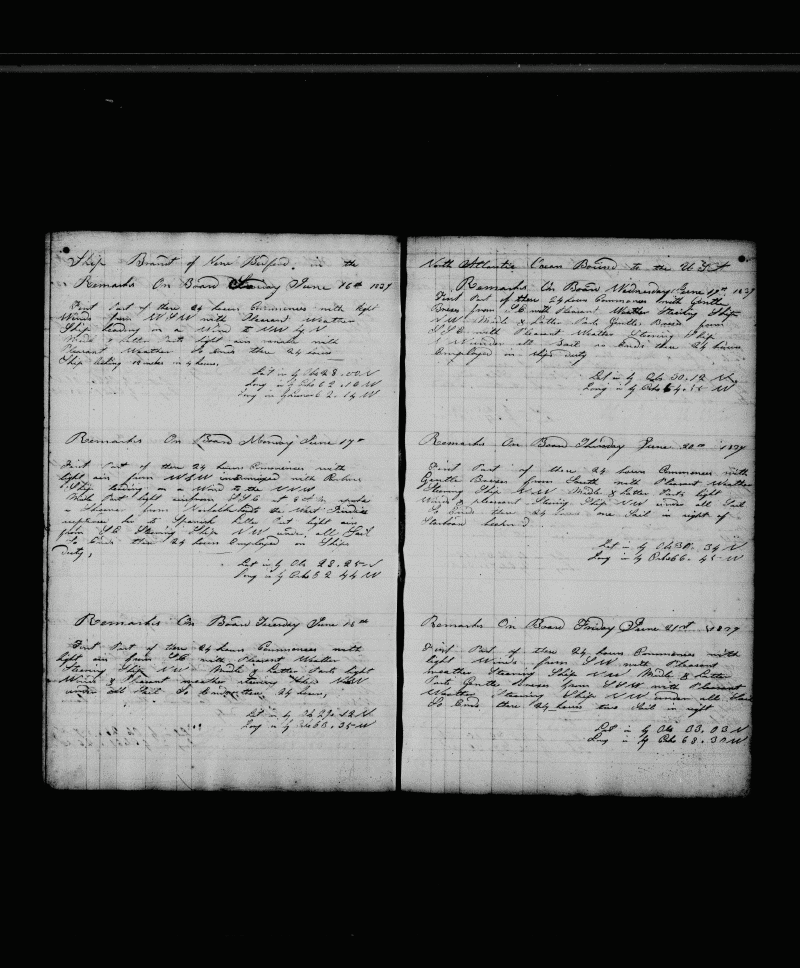 Ship Brant of New Bedford. in the
Remarks On Board Sunday June 16th 1839
First Part of these 24 hours Commences with light
Winds from WSW with Pleasant Weather
Ship heading on a Wind to NW by N
Middle & Latter Parts light airs with
Pleasant Weather So Ends these 24 hours
Ship
Lat in by Obs 28.00 N
Long in by
Long in by Lunar 62.14 W
Remarks On Board Monday June 17th
First Part of these 24 hours Commences with
light airs from WSW intermixed with
Ship heading on a Wind to the NNW
Middle Part light airs from SSE at
a from to West Indies
he to Spanish Latter Part light air
from SE Steering Ship NW under all Sail
So Ends these 24 hours Employed on Ships
duty,
Lat in by Obs 28.25 N
Long in by Obs 62 44 W
Remarks On Board Tuesday June 18th
First Part of these 24 hours Commences with
light airs from SE with Pleasant Weather
Steering Ship NW Middle & Latter Parts light
Winds & Pleasant weather Steering Ship NNW
under all Sail So Ends these 24 hours,
Lat in by Ob 29.12 N
Long in by Obs 63.35 W
North Atlantic Ocean Bound to the U.S.A
Remarks On Board Wednesday June 19th 1839
First Part of these 24 hours Commences with Gentle
Breeses from SE with Pleasant Weather Steering Ship
NW Middle & Latter Parts Gentle Breeses from
SSE with Pleasant Weather Steering Ship
NW under all Sail so Ends these 24 hours
Employed in ships duty
Lat in by Obs 30.12 N
Long in by Obs 64. W
Remarks On Board Thursday June 20th 1839
First Part of these 24 hours Commences with
Gentle Breeses from South with Pleasant Weather
Steering Ship NW Middle & Latter Parts light
Winds & pleasant Steering Ship NW under all Sail
So Ends these 24 hours one Sail in sight of
Larboard
Lat in by Obs 31.34 N
Long in by Obs 66.45 W
Remarks On Board Friday June 21st 1839
First Part of these 24 hours Commences with
light Winds from SW with Pleasant
weather Steering Ship NW Middle & Latter
Parts Gentle Breeses from SSW with Pleasant
Weather Steering Ship NW under all Sail
So Ends these 24 hours two Sail in sight
Lat in by Obs 33.03 N
Long in by Obs 68.30 W